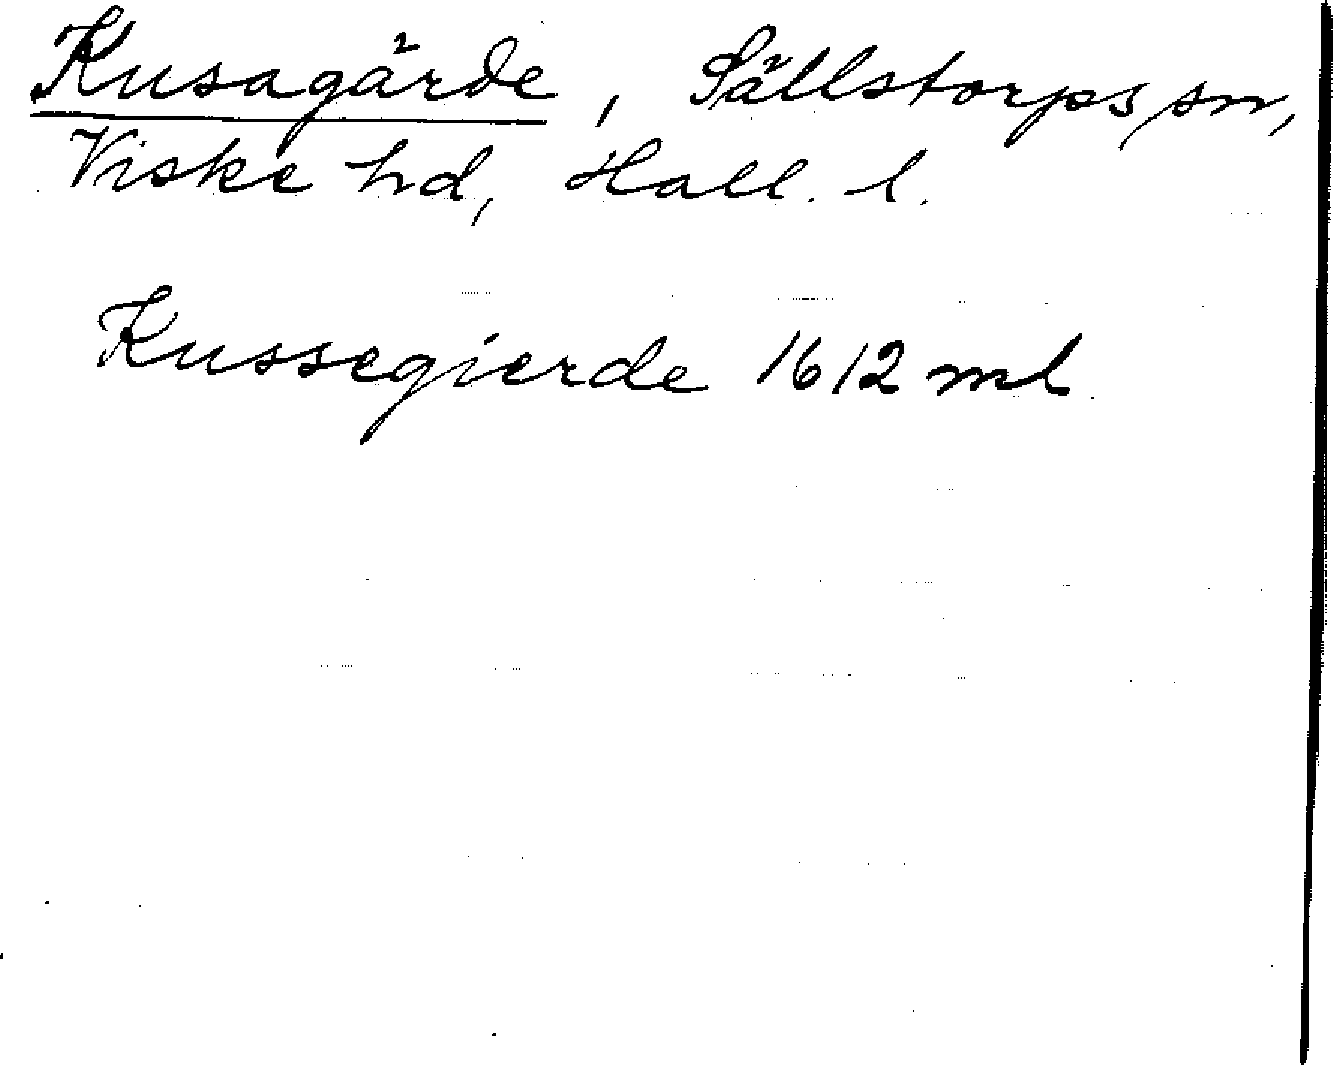 Kusagärde, Sällstorps sn,
Viske hd, Hall. l.
Kussegierde 1612 ml